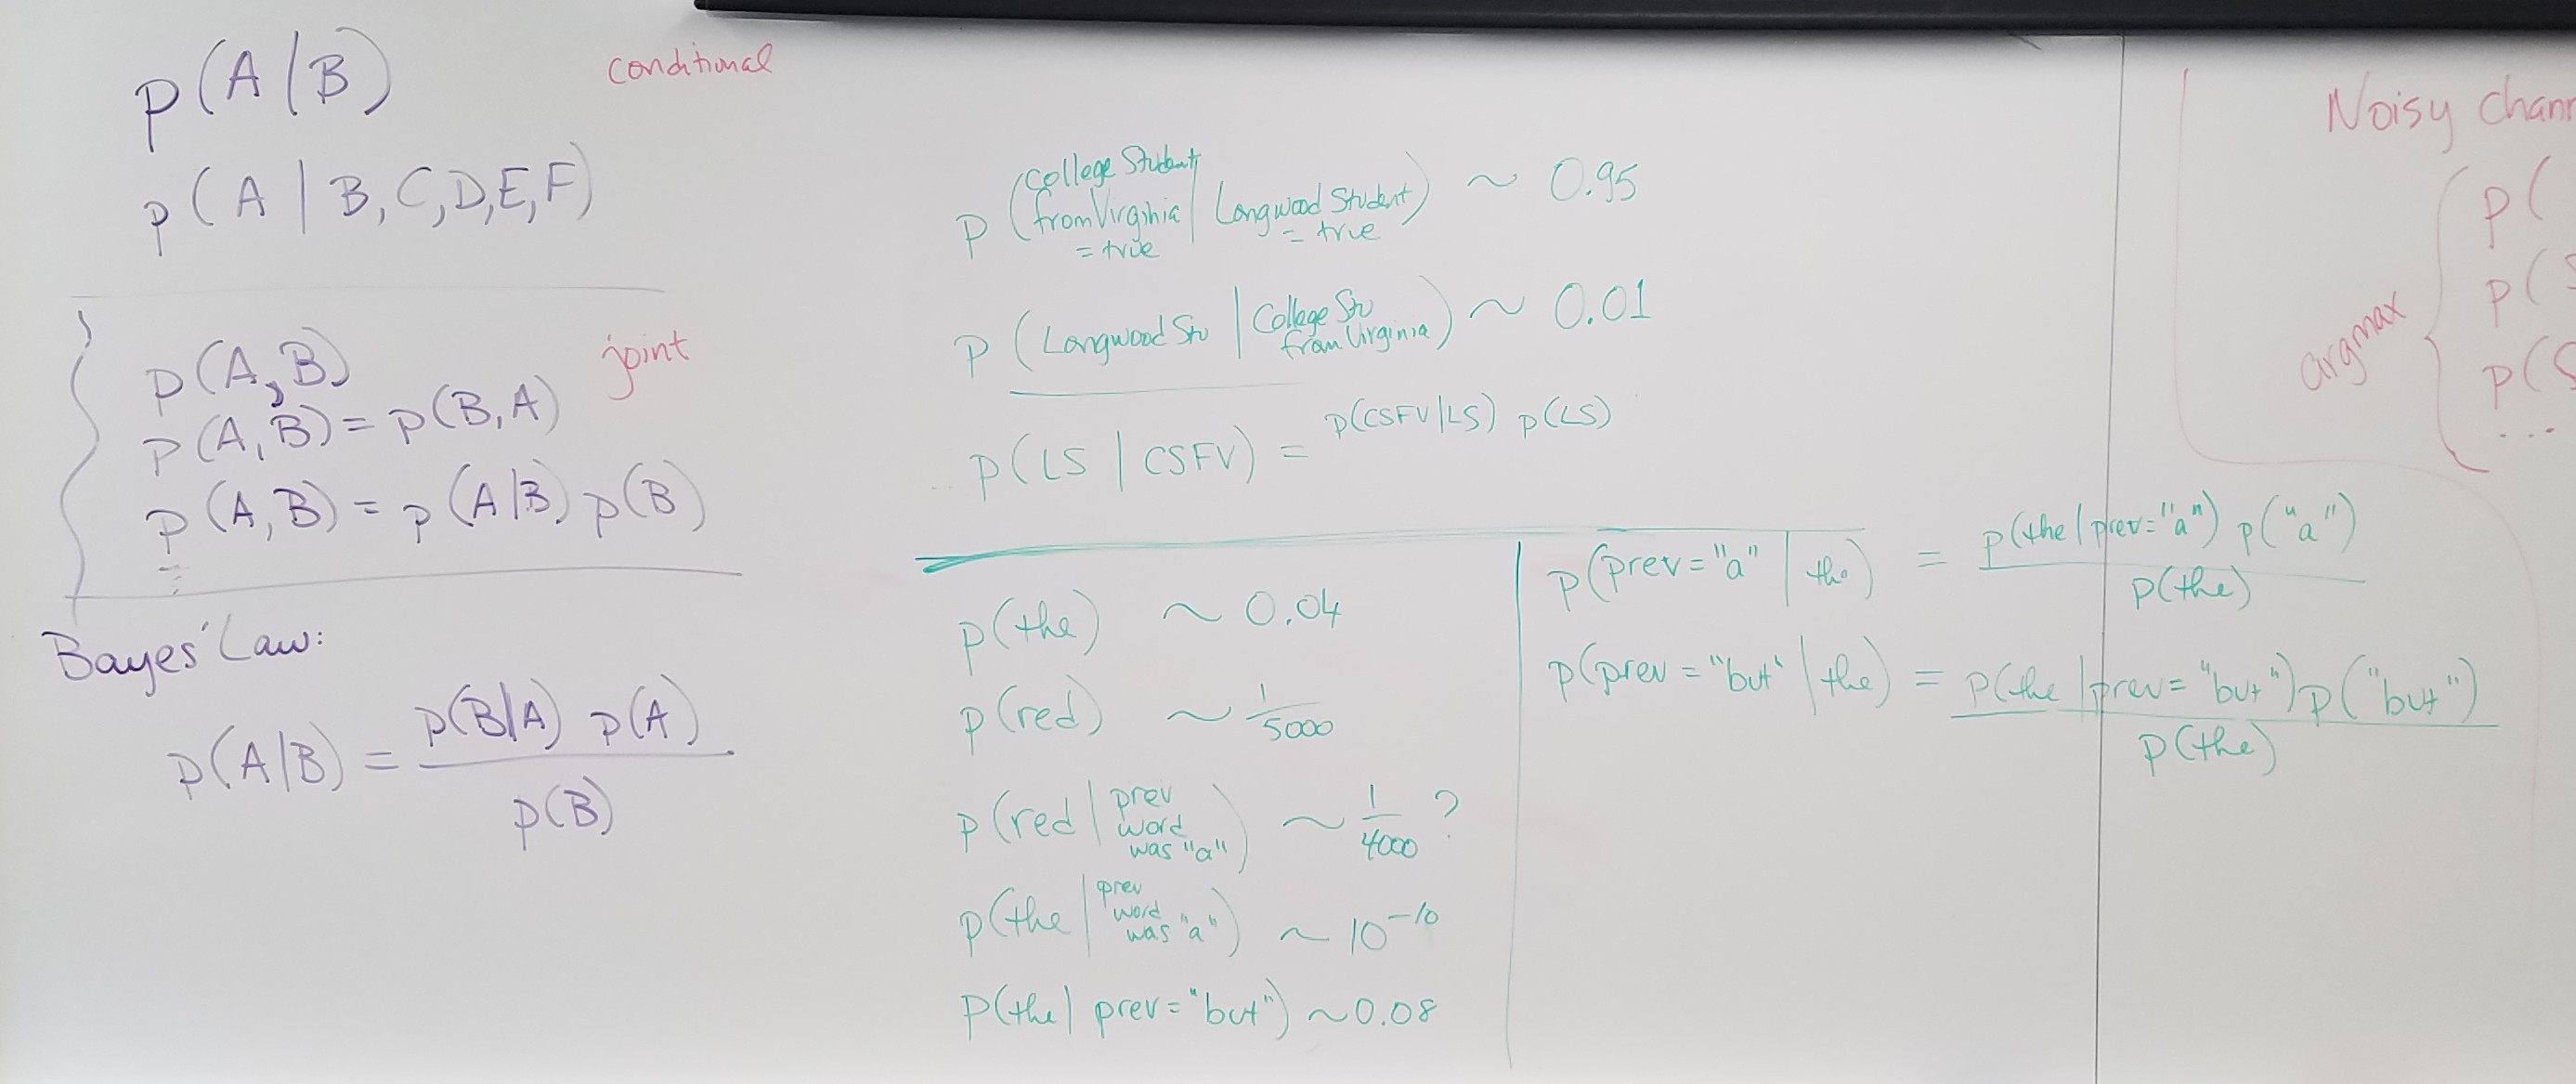 p(A|B)
conditional
p(A | B,C,D,E,F)
p(A,B)
joint
p(A,B) = p(B,A)
p(A,B) = p(A|B) p(B)
Bayes' Law:
p(A|B) = p(B|A) p(A)
p(B)
p(College Student from Virginia = true | Longwood Student = true) ~ 0.95
p(Longwood Stu | College Stu from Virginia) ~ 0.01
p(LS | CSFV) = p(CSFV|LS) p(LS)
p(the) ~ 0.04
p(red) ~ 1/5000
p(red | prev word was "a") ~ 1/4000 ?
p(the | prev word was "a") ~ 10^-10
p(the | prev = "but") ~ 0.08
p(prev = "a" | the) = p(the | prev = "a") p("a")
p(the)
p(prev = "but" | the) = p(the | prev = "but") p("but")
p(the)
Noisy
argmax
p(
p(
p(
...